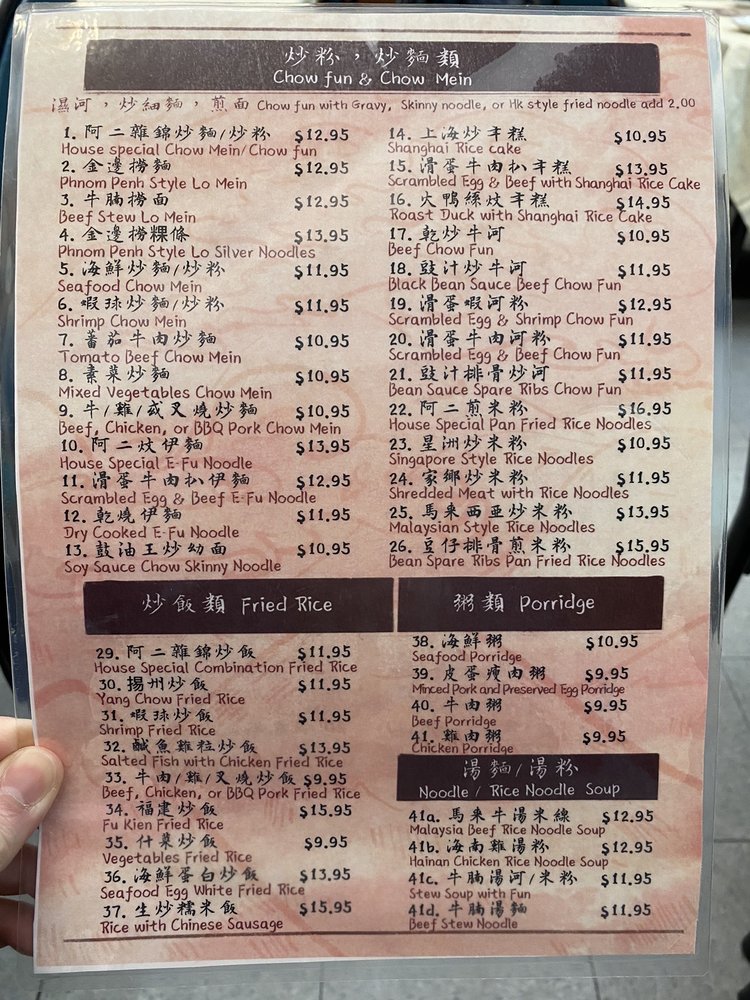 炒粉，炒麵類
Chow fun & Chow Mein
濕河，炒細麵，煎面 Chow fun with Gravy, Skinny noodle, or Hk style fried noodle add 2.00
1. 阿二雜錦炒麵/炒粉 $12.95
House special Chow Mein/Chow fun
2. 金邊撈麵 $12.95
Phnom Penh Style Lo Mein
3. 牛腩撈面 $12.95
Beef Stew Lo Mein
4. 金邊撈粿條 $13.95
Phnom Penh Style Lo Silver Noodles
5. 海鮮炒麵/炒粉 $11.95
Seafood Chow Mein
6. 蝦球炒麵/炒粉 $11.95
Shrimp Chow Mein
7. 蕃茄牛肉炒麵 $10.95
Tomato Beef Chow Mein
8. 素菜炒麵 $10.95
Mixed Vegetables Chow Mein
9. 牛/雞/或叉燒炒麵 $10.95
Beef, Chicken, or BBQ Pork Chow Mein
10. 阿二炆伊麵 $13.95
House Special E-Fu Noodle
11. 滑蛋牛肉扒伊麵 $12.95
Scrambled Egg & Beef E-Fu Noodle
12. 乾燒伊麵 $11.95
Dry Cooked E-Fu Noodle
13. 鼓油王炒幼面 $10.95
Soy Sauce Chow Skinny Noodle
14. 上海炒年糕 $10.95
Shanghai Rice cake
15. 滑蛋牛肉扒年糕 $13.95
Scrambled Egg & Beef with Shanghai Rice Cake
16. 火鴨絲炆年糕 $14.95
Roast Duck with Shanghai Rice Cake
17. 乾炒牛河 $10.95
Beef Chow Fun
18. 豉汁炒牛河 $11.95
Black Bean Sauce Beef Chow Fun
19. 滑蛋蝦河粉 $12.95
Scrambled Egg & Shrimp Chow Fun
20. 滑蛋牛肉河粉 $11.95
Scrambled Egg & Beef Chow Fun
21. 豉汁排骨炒河 $11.95
Bean Sauce Spare Ribs Chow Fun
22. 阿二煎米粉 $16.95
House Special Pan Fried Rice Noodles
23. 星洲炒米粉 $10.95
Singapore Style Rice Noodles
24. 家鄉炒米粉 $11.95
Shredded Meat with Rice Noodles
25. 馬來西亞炒米粉 $13.95
Malaysian Style Rice Noodles
26. 豆仔排骨煎米粉 $15.95
Bean Spare Ribs Pan Fried Rice Noodles
炒飯類 Fried Rice
29. 阿二雜錦炒飯 $11.95
House Special Combination Fried Rice
30. 揚州炒飯 $11.95
Yang Chow Fried Rice
31. 蝦球炒飯 $11.95
Shrimp Fried Rice
32. 鹹魚雞粒炒飯 $13.95
Salted Fish with Chicken Fried Rice
33. 牛肉/雞/叉燒炒飯 $9.95
Beef, Chicken, or BBQ Pork Fried Rice
34. 福建炒飯 $15.95
Fu Kien Fried Rice
35. 什菜炒飯 $9.95
Vegetables Fried Rice
36. 海鮮蛋白炒飯 $13.95
Seafood Egg White Fried Rice
37. 生炒糯米飯 $15.95
Rice with Chinese Sausage
粥類 Porridge
38. 海鮮粥 $10.95
Seafood Porridge
39. 皮蛋瘦肉粥 $9.95
Minced Pork and Preserved Egg Porridge
40. 牛肉粥 $9.95
Beef Porridge
41. 雞肉粥 $9.95
Chicken Porridge
湯麵/湯粉
Noodle / Rice Noodle Soup
41a. 馬來牛湯米線 $12.95
Malaysia Beef Rice Noodle Soup
41b. 海南雞湯粉 $12.95
Hainan Chicken Rice Noodle Soup
41c. 牛腩湯河/米粉 $11.95
Stew Soup with Fun
41d. 牛腩湯麵 $11.95
Beef Stew Noodle